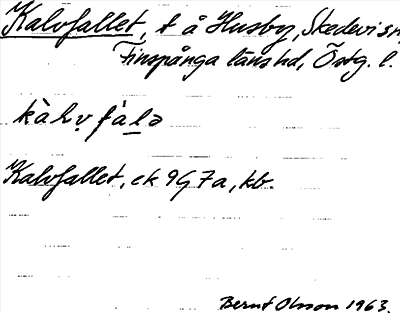 Kalvfallet, t å Husby, Skedevi sn,
Finspånga läns hd, Östg. l.
kàlv̥fàlə
Kalvfallet, ek 9G7a, kb.
Bernt Olsson 1963.